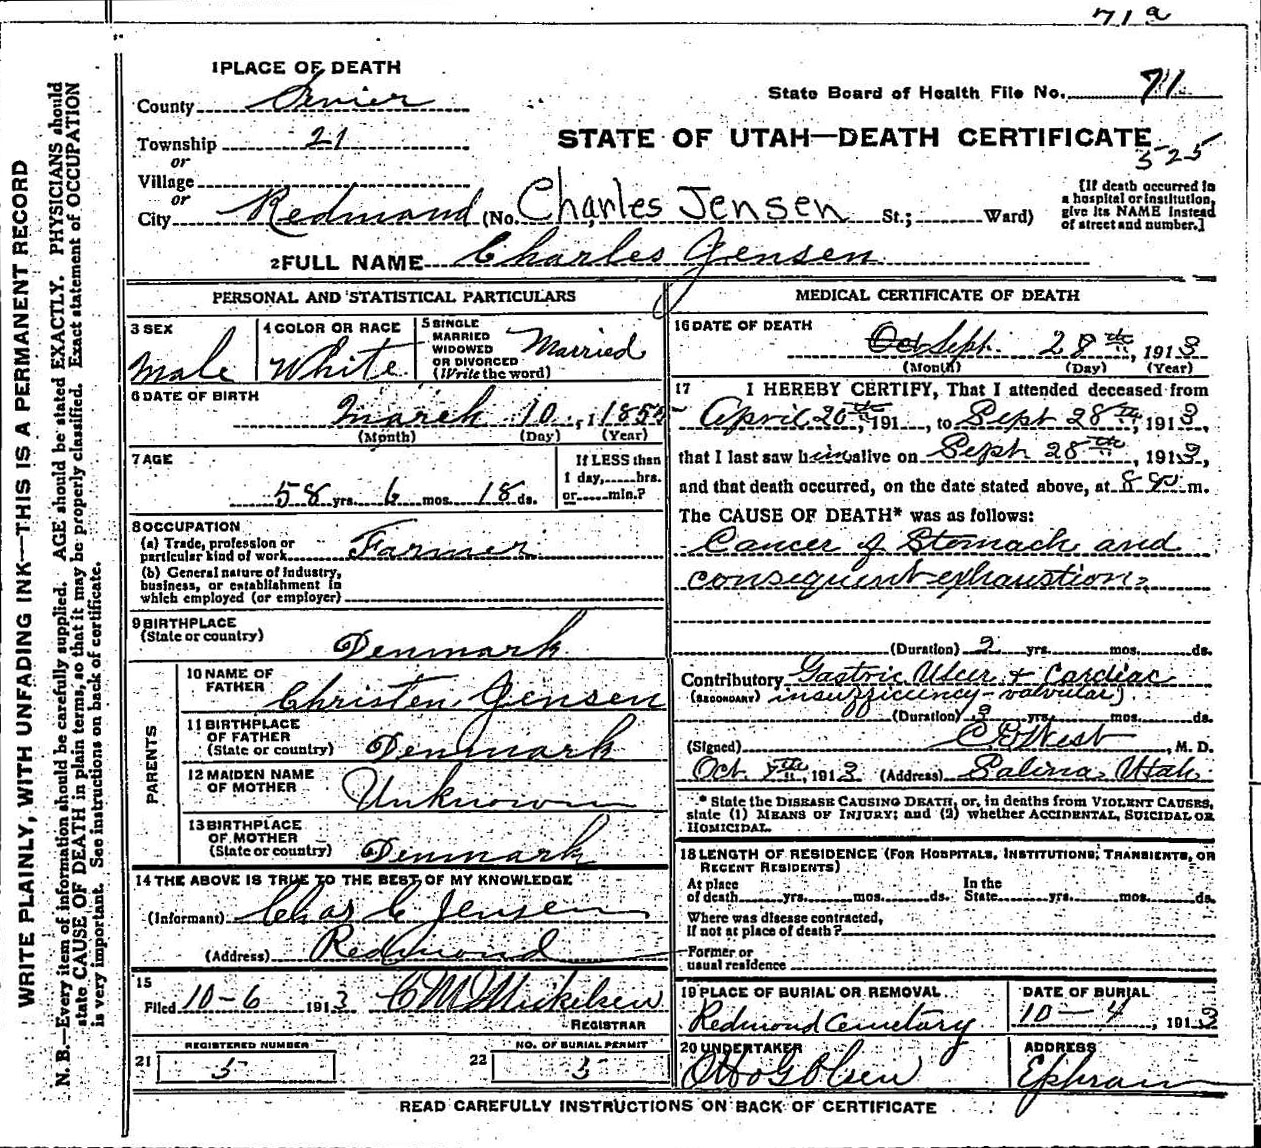 71a
1 PLACE OF DEATH
County Sevier
State Board of Health File No. 71
Township 21
STATE OF UTAH—DEATH CERTIFICATE
525
or
Village
or
City Redmond (No. Charles Jensen St.; Ward)
[If death occurred in
a hospital or institution,
give its NAME instead
of street and number.]
2 FULL NAME Charles Jensen
PERSONAL AND STATISTICAL PARTICULARS
3 SEX
Male
4 COLOR OR RACE
White
5 SINGLE
MARRIED
WIDOWED
OR DIVORCED
(Write the word)
Married
6 DATE OF BIRTH
March 10, 1855
(Month) (Day) (Year)
7 AGE
58 yrs. 6 mos. 18 ds.
If LESS than
1 day, hrs.
or min.?
8 OCCUPATION
(a) Trade, profession or
particular kind of work Farmer
(b) General nature of industry,
business, or establishment in
which employed (or employer)
9 BIRTHPLACE
(State or country)
Denmark
PARENTS
10 NAME OF
FATHER
Christen Jensen
11 BIRTHPLACE
OF FATHER
(State or country) Denmark
12 MAIDEN NAME
OF MOTHER
Unknown
13 BIRTHPLACE
OF MOTHER
(State or country) Denmark
14 THE ABOVE IS TRUE TO THE BEST OF MY KNOWLEDGE
(Informant) Chas C Jensen
(Address) Redmond
15
Filed 10-6 1913 C M Mickelsen
REGISTRAR
REGISTERED NUMBER
21 5
NO. OF BURIAL PERMIT
22 5
MEDICAL CERTIFICATE OF DEATH
16 DATE OF DEATH
Oct Sept. 28th, 1913
(Month) (Day) (Year)
17 I HEREBY CERTIFY, That I attended deceased from
April 20th, 191 , to Sept 28th, 1913,
that I last saw him alive on Sept 28th, 1913,
and that death occurred, on the date stated above, at m.
The CAUSE OF DEATH* was as follows:
Cancer of Stomach and
consequent exhaustion.
(Duration) 2 yrs. mos. ds.
Contributory Gastric Ulcer & Cardiac
(SECONDARY) insufficiency-valvular)
(Duration) yrs. mos. ds.
(Signed) West, M. D.
Oct. , 1913 (Address) Salina, Utah
* State the DISEASE CAUSING DEATH, or, in deaths from VIOLENT CAUSES,
state (1) MEANS OF INJURY; and (2) whether ACCIDENTAL, SUICIDAL OR
HOMICIDAL.
18 LENGTH OF RESIDENCE (FOR HOSPITALS, INSTITUTIONS, TRANSIENTS, OR
RECENT RESIDENTS)
At place
of death yrs. mos. ds.
In the
State yrs. mos. ds.
Where was disease contracted,
if not at place of death?
Former or
usual residence
19 PLACE OF BURIAL OR REMOVAL
Redmond Cemetary
DATE OF BURIAL
10-4, 1913
20 UNDERTAKER
Otto G Olsen
ADDRESS
Ephraim
READ CAREFULLY INSTRUCTIONS ON BACK OF CERTIFICATE
WRITE PLAINLY, WITH UNFADING INK—THIS IS A PERMANENT RECORD
N. B.—Every item of information should be carefully supplied. AGE should be stated EXACTLY. PHYSICIANS should
state CAUSE OF DEATH in plain terms, so that it may be properly classified. Exact statement of OCCUPATION
is very important. See instructions on back of certificate.